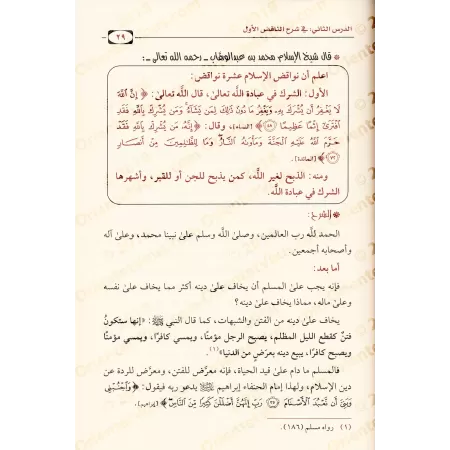 الدرس الثاني: في شرح الناقض الأول
٢٩
* قال شيخ الإسلام محمد بن عبدالوهاب ـ رحمه الله تعالى ـ:
اعلم أن نواقض الإسلام عشرة نواقض:
الأول: الشرك في عبادة اللَّه تعالىٰ، قال اللَّه تعالىٰ: ﴿إِنَّ ٱللَّهَ
لَا يَغْفِرُ أَن يُشْرَكَ بِهِۦ وَيَغْفِرُ مَا دُونَ ذَٰلِكَ لِمَن يَشَآءُ وَمَن يُشْرِكْ بِٱللَّهِ فَقَدِ
ٱفْتَرَىٰٓ إِثْمًا عَظِيمًا ٤٨﴾ [النساء]، وقال: ﴿إِنَّهُۥ مَن يُشْرِكْ بِٱللَّهِ فَقَدْ
حَرَّمَ ٱللَّهُ عَلَيْهِ ٱلْجَنَّةَ وَمَأْوَىٰهُ ٱلنَّارُ وَمَا لِلظَّٰلِمِينَ مِنْ أَنصَارٍ
٧٢﴾ [المائدة].
ومنه: الذبح لغير اللَّه، كمن يذبح للجن أو للقبر، وأشهرها
الشرك في عبادة اللَّه.
* الشرح:
الحمد للَّه رب العالمين، وصلىٰ اللَّه وسلم علىٰ نبينا محمد، وعلىٰ آله
وأصحابه أجمعين.
أما بعد:
فإنه يجب علىٰ المسلم أن يخاف علىٰ دينه أكثر مما يخاف علىٰ نفسه
وعلىٰ ماله، مماذا يخاف علىٰ دينه؟
يخاف علىٰ دينه من الفتن والشبهات، كما قال النبي ﷺ: «إنها ستكونُ
فتنٌ كقطع الليل المظلم، يصبح الرجل مؤمنًا، ويمسي كافرًا، ويمسي مؤمنًا
ويصبح كافرًا، يبيع دينه بعرَضٍ من الدنيا»(١).
فالمسلم ما دام علىٰ قيد الحياة، فإنه معرَّض للفتن، ومعرَّض للردة عن
دين الإسلام، ولهذا إمام الحنفاء إبراهيم ﷺ يدعو ربه فيقول: ﴿وَٱجْنُبْنِي
وَبَنِيَّ أَن نَّعْبُدَ ٱلْأَصْنَامَ ٣٥ رَبِّ إِنَّهُنَّ أَضْلَلْنَ كَثِيرًا مِّنَ ٱلنَّاسِ﴾ [إبراهيم].
(١) رواه مسلم (١٨٦).